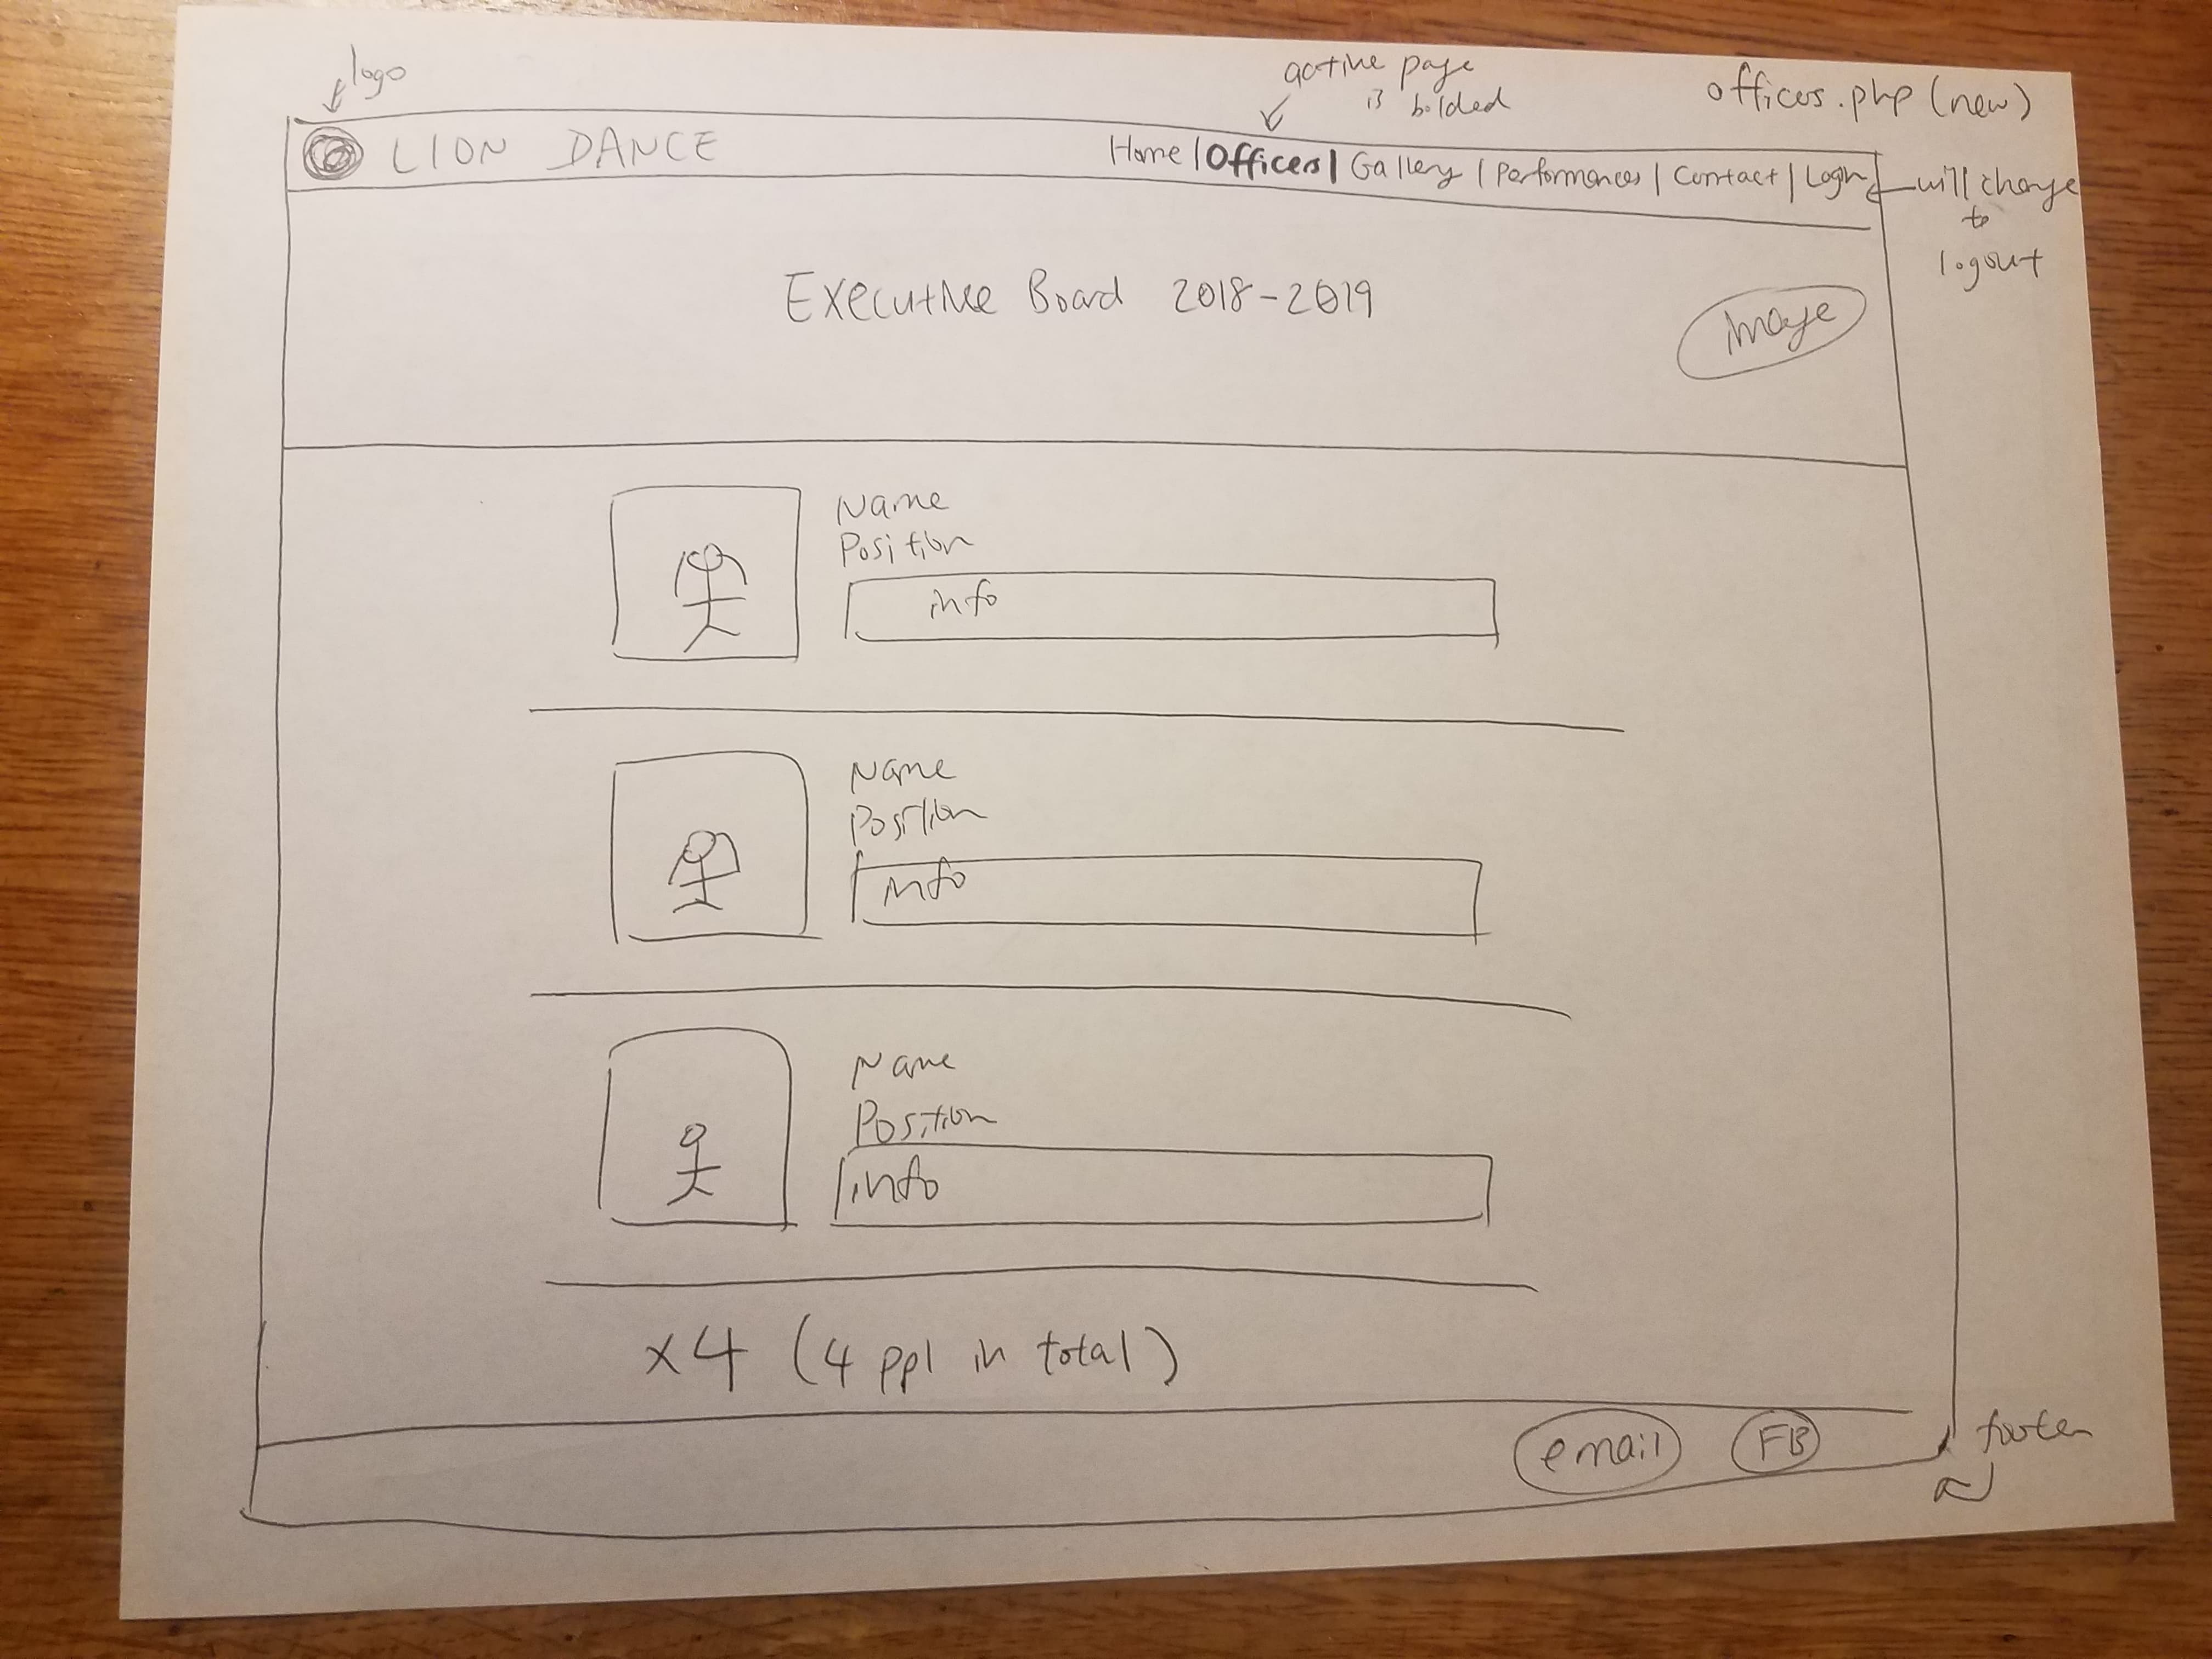 logo
active page
is bolded
officers.php (new)
LION DANCE
Home | Officers | Gallery | Performances | Contact | Login
will change
to
logout
Executive Board 2018-2019
image
Name
Position
info
Name
Position
info
Name
Position
info
x4 (4 ppl in total)
email
FB
footer